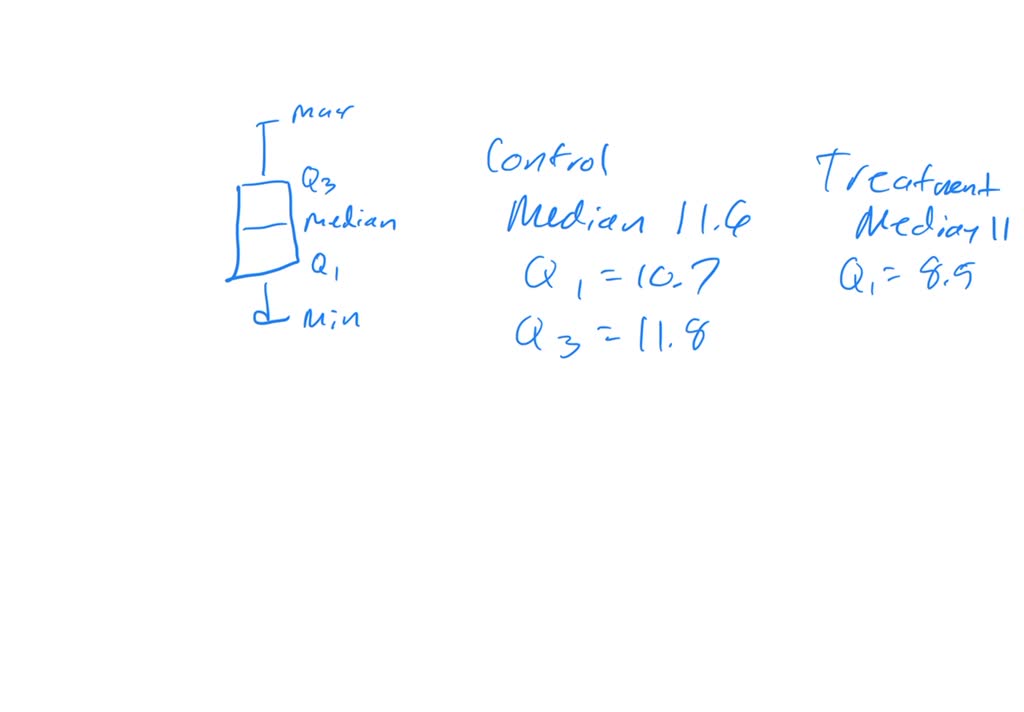 Max
Q3
Median
Q1
Min
Control
Median 11.6
Q1 = 10.7
Q3 = 11.8
Treatment
Median 11
Q1 = 8.9